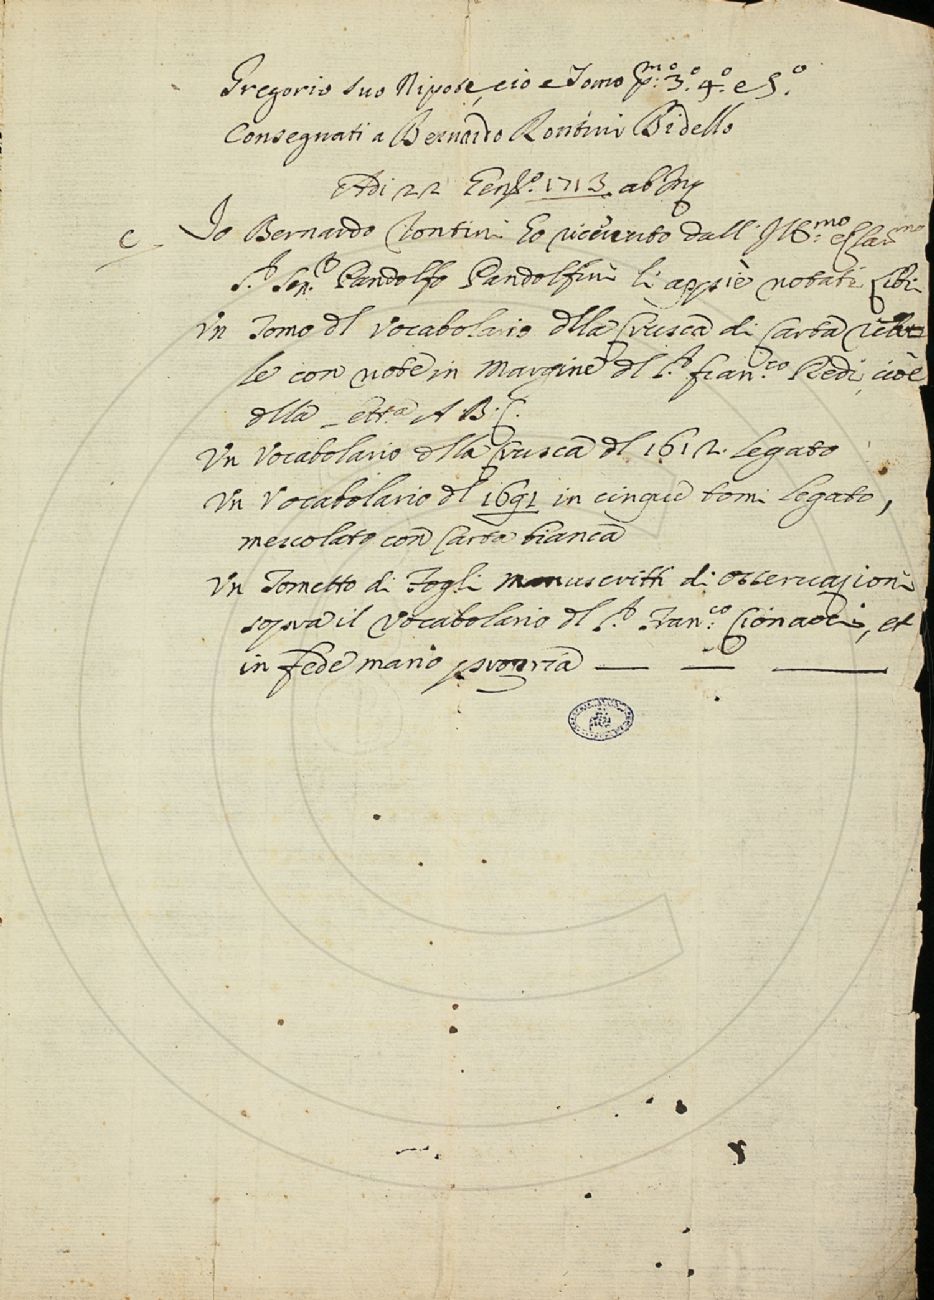 Gregorio suo Nipote, cio e Tomo p.mo 3.o 4.o e 5.o
Consegnati a Bernardo Rontini Bidello
Adi 22 Genn.o 1713. ab Inc
c Io Bernardo Rontini ho riceuuto dall' Ill.mo e Clar.mo
S.r Sen.re Pandolfo Pandolfini li appiè notati Libri
un Tomo dl Vocabolario dlla Crusca di Carta
le con note in Margine dl S.r Fran.co Redi, cioè
dlla Lett.a A B. C.
Un Vocabolario dlla Crusca dl 1612. legato
Un Vocabolario dl 1691 in cinque tomi legato,
mescolato con Carta bianca
Un Tometto di Fogli manuscritti di osseruazioni
sopra il Vocabolario dl S.r Fran.co Cionacci, et
in fede mano propria